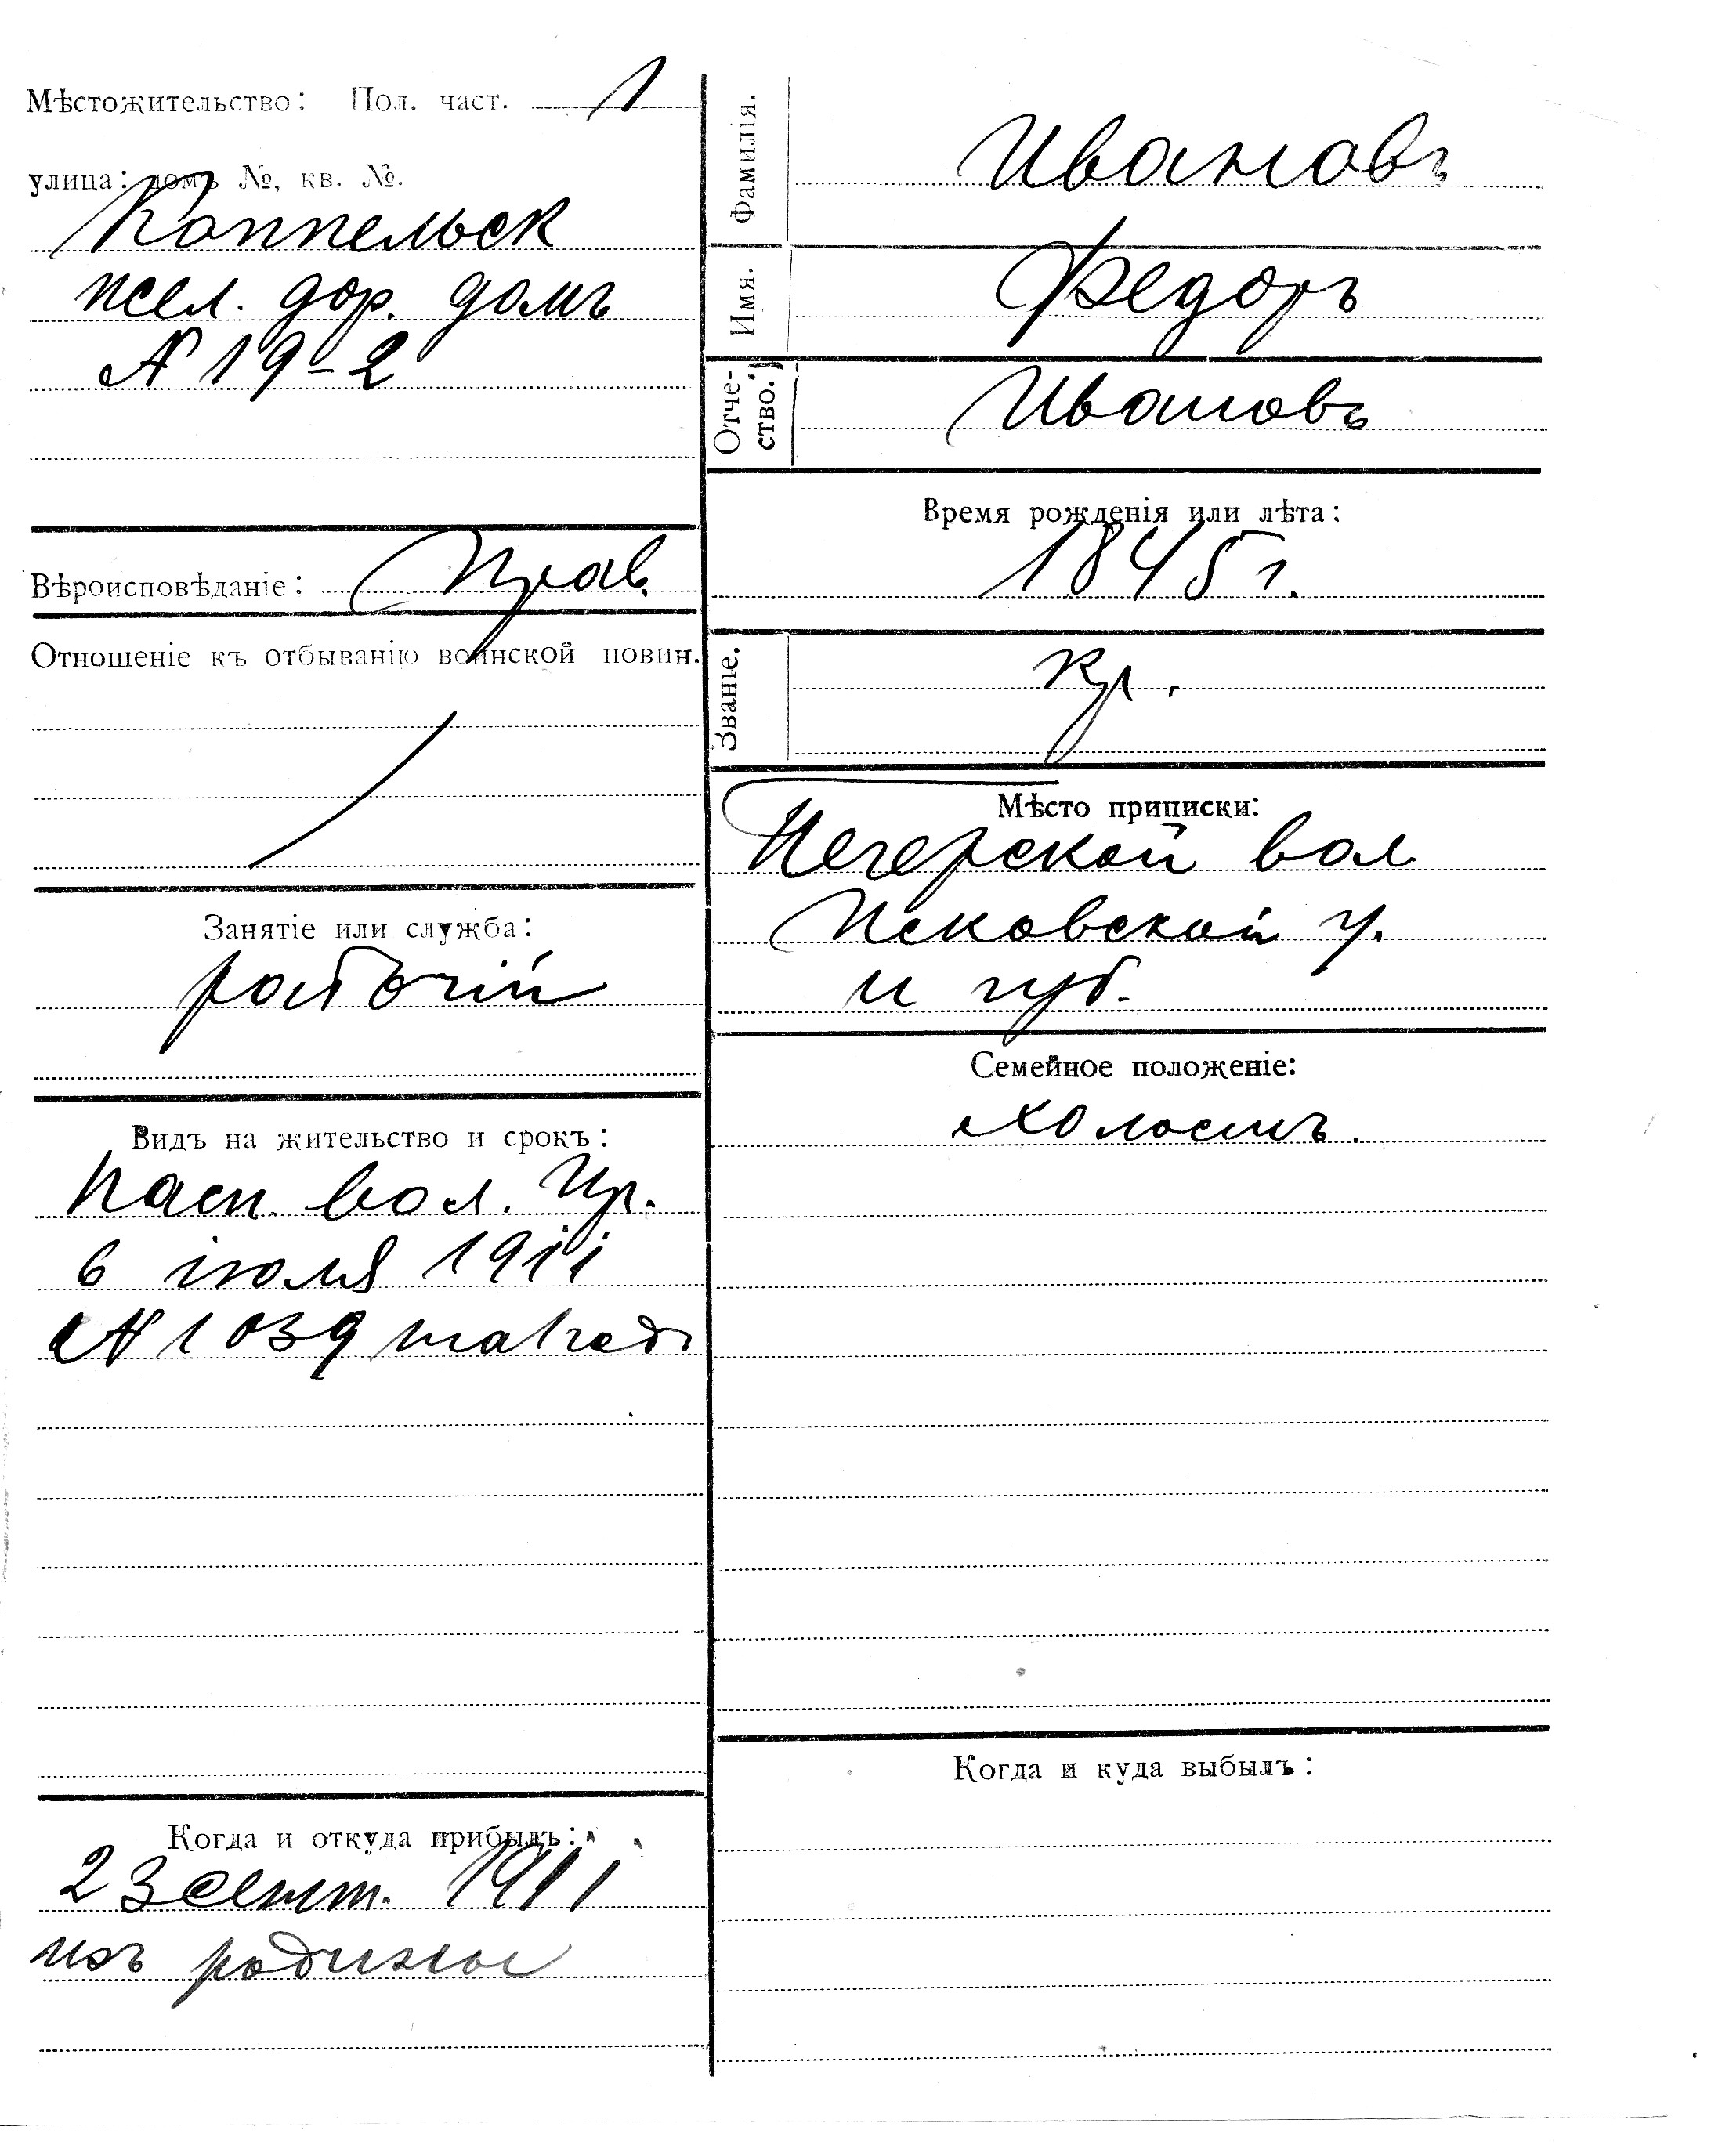 Мѣстожительство: Пол. част. 1
улица: домъ №, кв. №.
Коппельск
жел. дор. домъ
№ 19-2
Вѣроисповѣданіе: Прав.
Отношеніе къ отбыванію воинской повин.
Занятіе или служба:
рабочій
Видъ на жительство и срокъ:
Пасп. вол. Пр.
6 іюля 1911
№ 1039 на 1 годъ
Когда и откуда прибылъ:
23 сент. 1911
изъ родины
Фамилія. Ивановъ
Имя. Федоръ
Отче-
ство. Ивановъ
Время рожденія или лѣта:
1845 г.
Званіе. кр.
Мѣсто приписки:
Печерской вол
Псковской у.
и губ.
Семейное положеніе:
холостъ.
Когда и куда выбылъ: